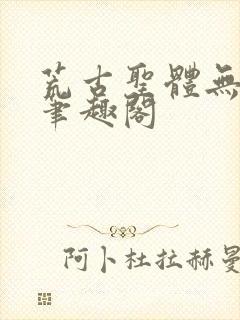 荒古聖體無
筆趣閣
阿卜杜拉赫曼